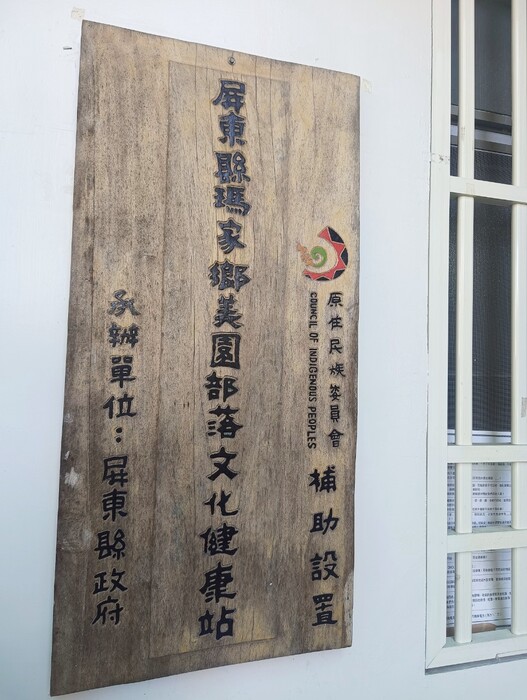 原住民族委員會 補助設置
COUNCIL OF INDIGENOUS PEOPLES
屏東縣瑪家鄉美園部落文化健康站
承辦單位：屏東縣政府